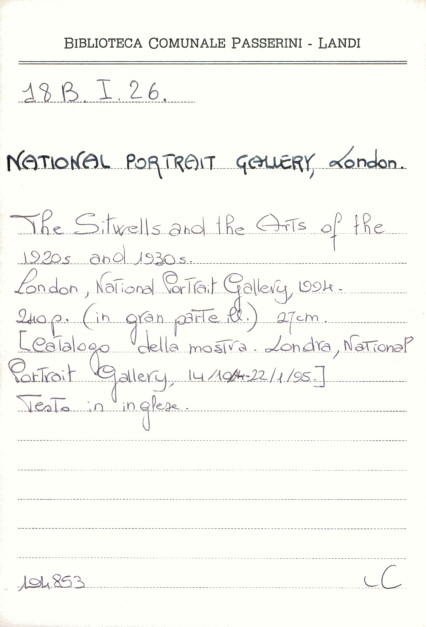 BIBLIOTECA COMUNALE PASSERINI - LANDI
18 B. I. 26.
NATIONAL PORTRAIT GALLERY, London.
The Sitwells and the Arts of the
1920s and 1930s.
London, National Portrait Gallery, 1994.
240 p. (in gran parte ill.) 27 cm.
[Catalogo della mostra. Londra, National
Portrait Gallery, 14/10/94-22/1/95.]
Testo in inglese.
194853
LC